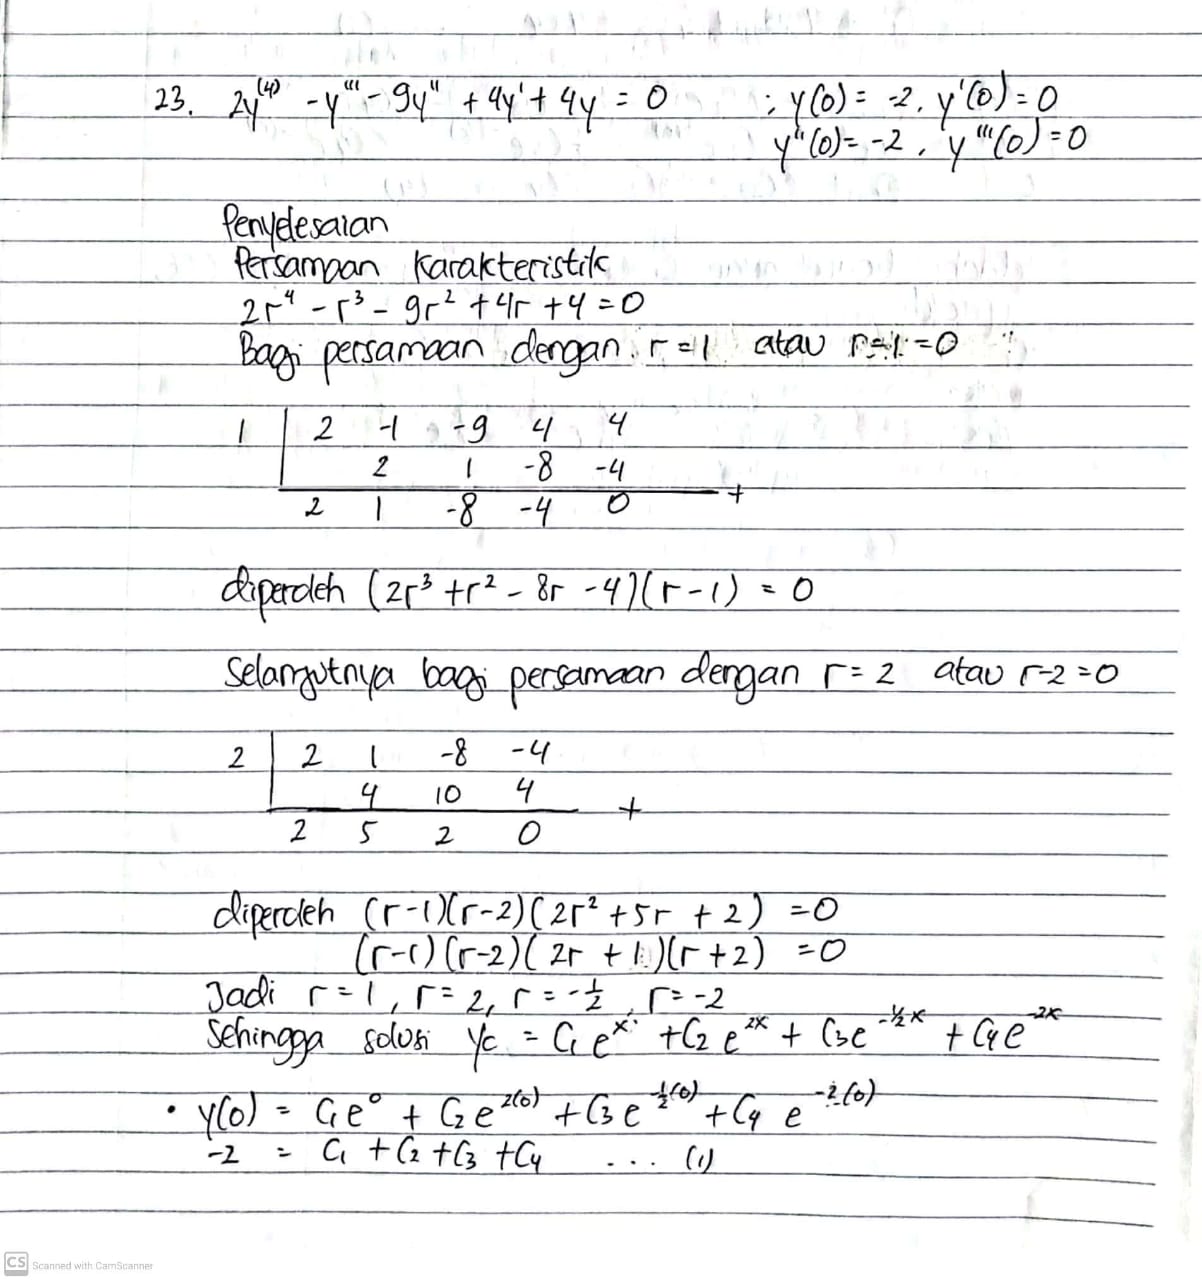 23. 2y⁽⁴⁾ - y''' - 9y'' + 4y' + 4y = 0 ; y(0) = -2, y'(0) = 0
y''(0) = -2, y'''(0) = 0
Penyelesaian
Persamaan Karakteristik
2r⁴ - r³ - 9r² + 4r + 4 = 0
Bagi persamaan dengan r = 1 atau r-1 = 0
1 | 2 -1 -9 4 4
2 1 -8 -4
+
2 1 -8 -4 0
diperoleh (2r³ + r² - 8r - 4)(r - 1) = 0
Selanjutnya bagi persamaan dengan r = 2 atau r-2 = 0
2 | 2 1 -8 -4
4 10 4
+
2 5 2 0
diperoleh (r-1)(r-2)(2r² + 5r + 2) = 0
(r-1)(r-2)(2r + 1)(r + 2) = 0
Jadi r = 1, r = 2, r = -½, r = -2
Sehingga solusi yc = C₁eˣ + C₂e²ˣ + C₃e^(-½x) + C₄e^(-2x)
• y(0) = C₁e⁰ + C₂e^(2(0)) + C₃e^(-½(0)) + C₄e^(-2(0))
-2 = C₁ + C₂ + C₃ + C₄ ... (1)
CS Scanned with CamScanner